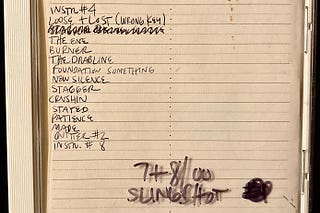 INSTR. #4
LOOSE + LOST (WRONG KEY)
THE ONE
BURNER
THE DRAGLINE
FOUNDATION SOMETHING
NEW SILENCE
STAGGER
CRUSHIN
STATED
PATIENCE
MADE
GUTTER #2
INSTR. # 8
7+8/00
SLINGSHOT